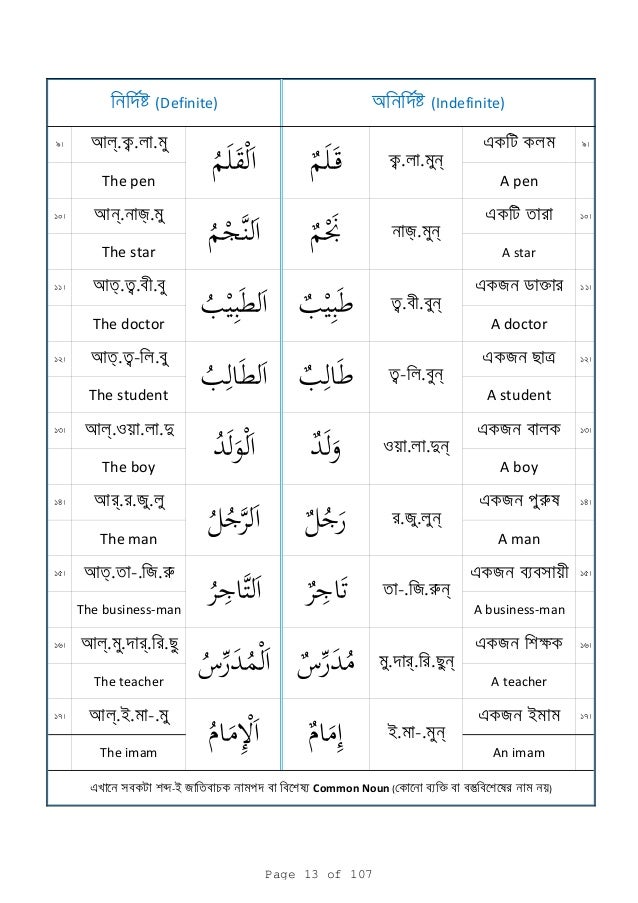 নির্দিষ্ট (Definite) অনির্দিষ্ট (Indefinite)
৯। আল্.ক্ব.লা.মু اَلْقَلَمُ قَلَمٌ ক্ব.লা.মুন্ একটি কলম ৯।
The pen A pen
১০। আন্.নাজ্.মু اَلنَّجْمُ نَجْمٌ নাজ্.মুন্ একটি তারা ১০।
The star A star
১১। আত্.ত্ব.বী.বু اَلطَبِيْبُ طَبِيْبٌ ত্ব.বী.বুন্ একজন ডাক্তার ১১।
The doctor A doctor
১২। আত্.ত্ব-লি.বু اَلطَالِبُ طَالِبٌ ত্ব-লি.বুন্ একজন ছাত্র ১২।
The student A student
১৩। আল্.ওয়া.লা.দু اَلْوَلَدُ وَلَدٌ ওয়া.লা.দুন্ একজন বালক ১৩।
The boy A boy
১৪। আর্.র.জু.লু اَلرَّجُلُ رَجُلٌ র.জু.লুন্ একজন পুরুষ ১৪।
The man A man
১৫। আত্.তা-.জি.রু اَلتَّاجِرُ تَاجِرٌ তা-.জি.রুন্ একজন ব্যবসায়ী ১৫।
The business-man A business-man
১৬। আল্.মু.দার্.রি.ছু اَلْمُدَرِّسُ مُدَرِّسٌ মু.দার্.রি.ছুন্ একজন শিক্ষক ১৬।
The teacher A teacher
১৭। আল্.ই.মা-.মু اَلْإِمَامُ إِمَامٌ ই.মা-.মুন্ একজন ইমাম ১৭।
The imam An imam
এখানে সবকটা শব্দ-ই জাতিবাচক নামপদ বা বিশেষ্য Common Noun (কোনো ব্যক্তি বা বস্তুবিশেষের নাম নয়)
Page 13 of 107